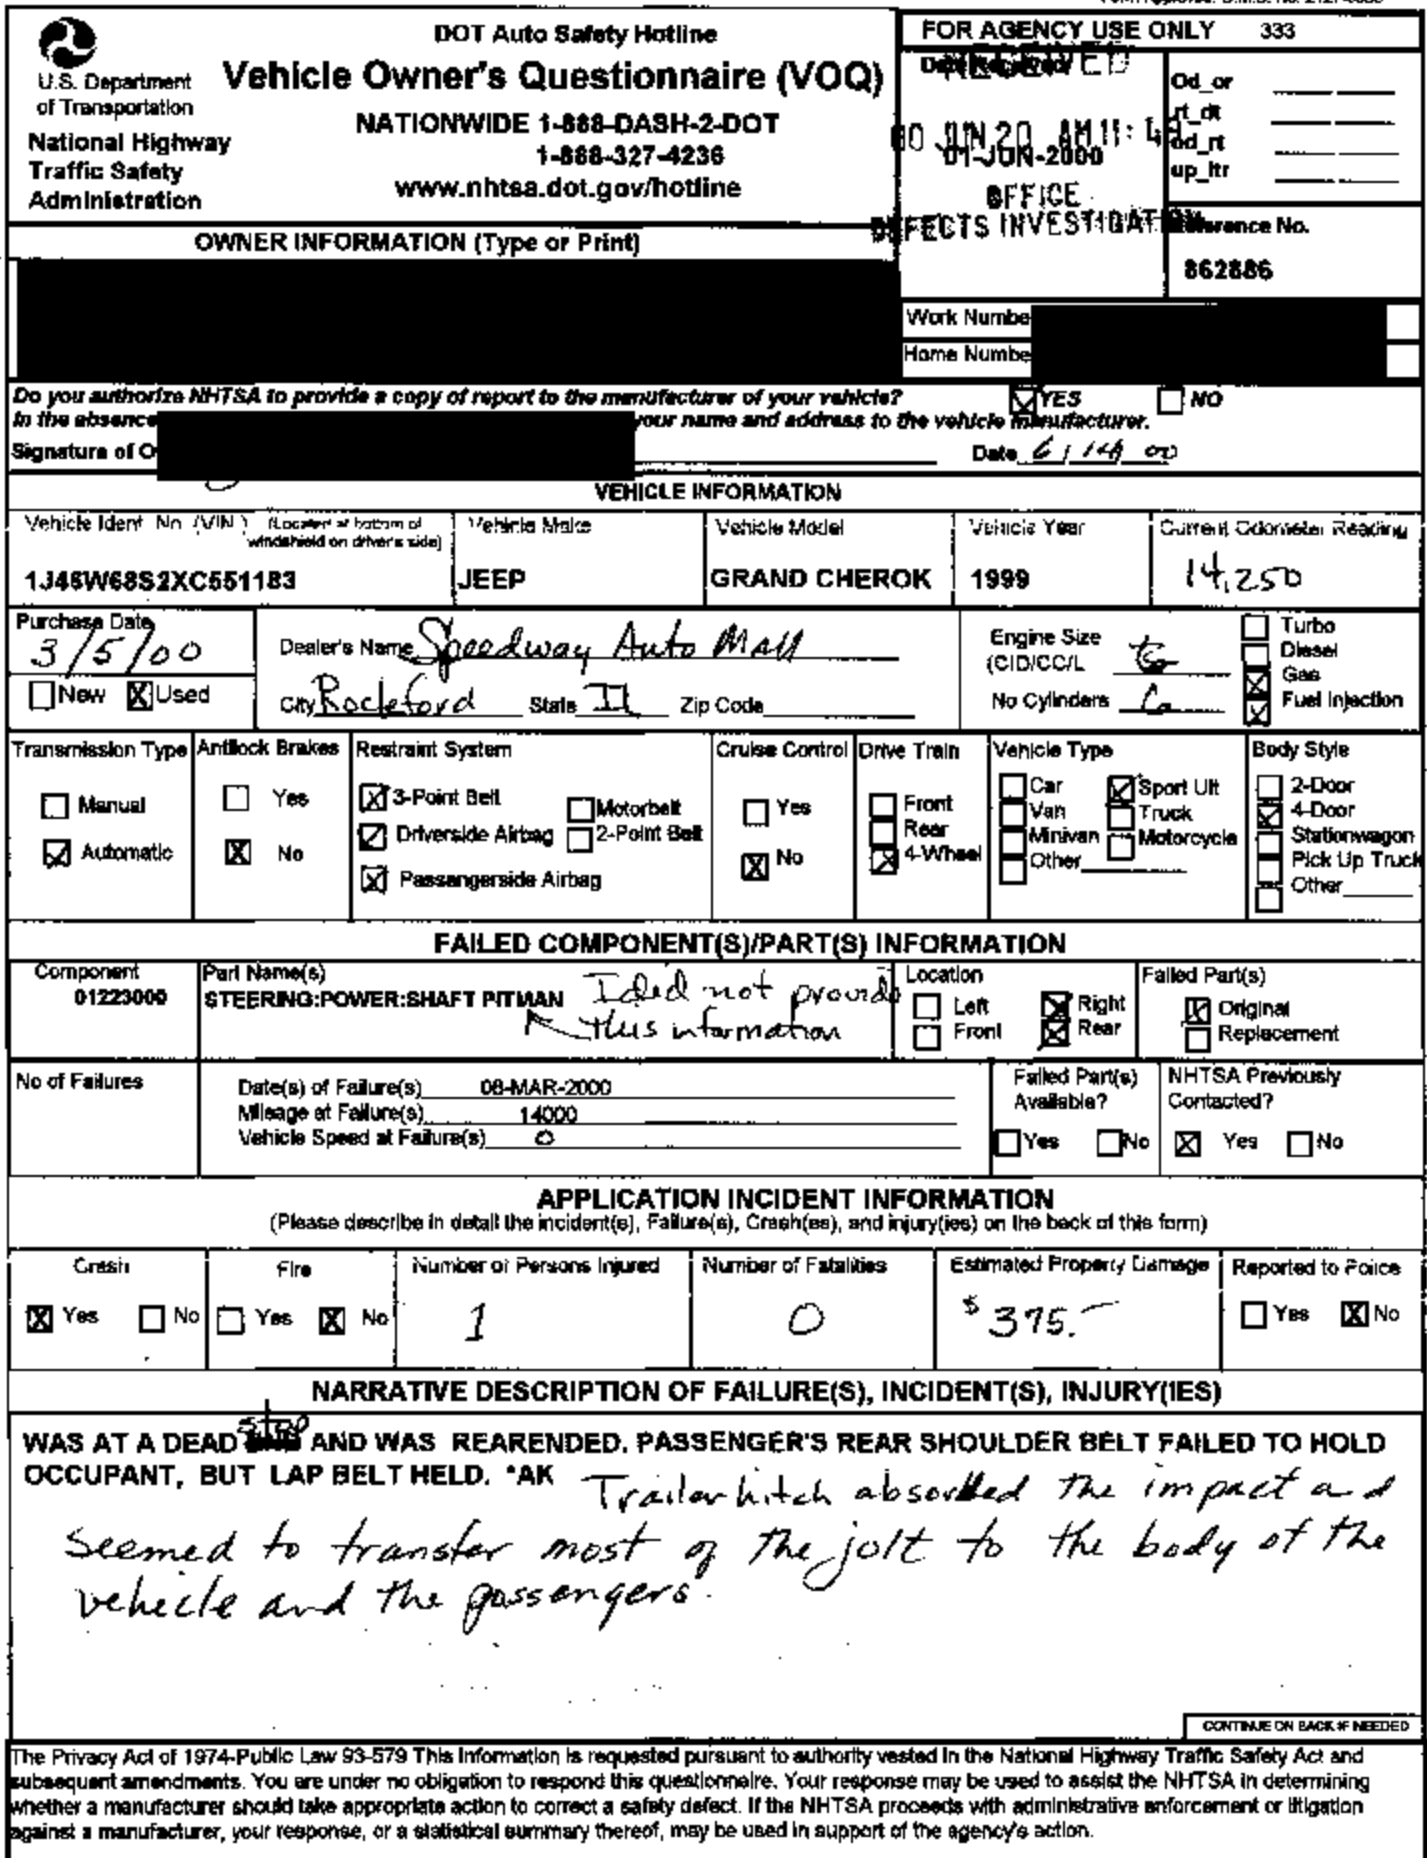 DOT Auto Safety Hotline
Vehicle Owner's Questionnaire (VOQ)
NATIONWIDE 1-888-DASH-2-DOT
1-888-327-4236
www.nhtsa.dot.gov/hotline
U.S. Department
of Transportation
National Highway
Traffic Safety
Administration
FOR AGENCY USE ONLY 333
Od_or
rt_dt
od_rt
up_ltr
JUN 20 AM 11:
01-JUN-2000
OFFICE
DEFECTS INVESTIGAT
862886
OWNER INFORMATION (Type or Print)
Work Numbe
Home Numbe
Do you authorize NHTSA to provide a copy of report to the manufacturer of your vehicle? YES NO
In the absence your name and address to the vehicle manufacturer.
Signature of O Date 6/14/00
VEHICLE INFORMATION
Vehicle Ident. No. (VIN) (Located at bottom of windshield on driver's side) Vehicle Make Vehicle Model Vehicle Year Current Odometer Reading
1J46W68S2XC551183 JEEP GRAND CHEROK 1999 14,250
Purchase Date
3/5/00
New Used
Dealer's Name Speedway Auto Mall
City Rockford State IL Zip Code
Engine Size
(CID/CC/L
No Cylinders 6
Turbo
Diesel
Gas
Fuel Injection
Transmission Type
Manual
Automatic
Antilock Brakes
Yes
No
Restraint System
3-Point Belt
Driverside Airbag
Passangerside Airbag
Motorbelt
2-Point Belt
Cruise Control
Yes
No
Drive Train
Front
Rear
4-Wheel
Vehicle Type
Car
Van
Minivan
Other
Sport Ult
Truck
Motorcycle
Body Style
2-Door
4-Door
Stationwagon
Pick Up Truck
Other
FAILED COMPONENT(S)/PART(S) INFORMATION
Component
01223000
Part Name(s)
STEERING:POWER:SHAFT PITMAN
I did not provide
this information
Location
Left
Front
Right
Rear
Failed Part(s)
Original
Replacement
No of Failures
Date(s) of Failure(s) 08-MAR-2000
Mileage at Failure(s) 14000
Vehicle Speed at Failure(s) 0
Failed Part(s)
Available?
Yes No
NHTSA Previously
Contacted?
Yes No
APPLICATION INCIDENT INFORMATION
(Please describe in detail the incident(s), Failure(s), Crash(es), and injury(ies) on the back of this form)
Crash
Yes No
Fire
Yes No
Number of Persons Injured
1
Number of Fatalities
0
Estimated Property Damage
$375.-
Reported to Police
Yes No
NARRATIVE DESCRIPTION OF FAILURE(S), INCIDENT(S), INJURY(IES)
WAS AT A DEAD stop AND WAS REARENDED. PASSENGER'S REAR SHOULDER BELT FAILED TO HOLD
OCCUPANT, BUT LAP BELT HELD. *AK Trailer hitch absorbed the impact and
seemed to transfer most of the jolt to the body of the
vehicle and the passengers.
CONTINUE ON BACK IF NEEDED
The Privacy Act of 1974-Public Law 93-579 This information is requested pursuant to authority vested in the National Highway Traffic Safety Act and
subsequent amendments. You are under no obligation to respond this questionnaire. Your response may be used to assist the NHTSA in determining
whether a manufacturer should take appropriate action to correct a safety defect. If the NHTSA proceeds with administrative enforcement or litigation
against a manufacturer, your response, or a statistical summary thereof, may be used in support of the agency's action.